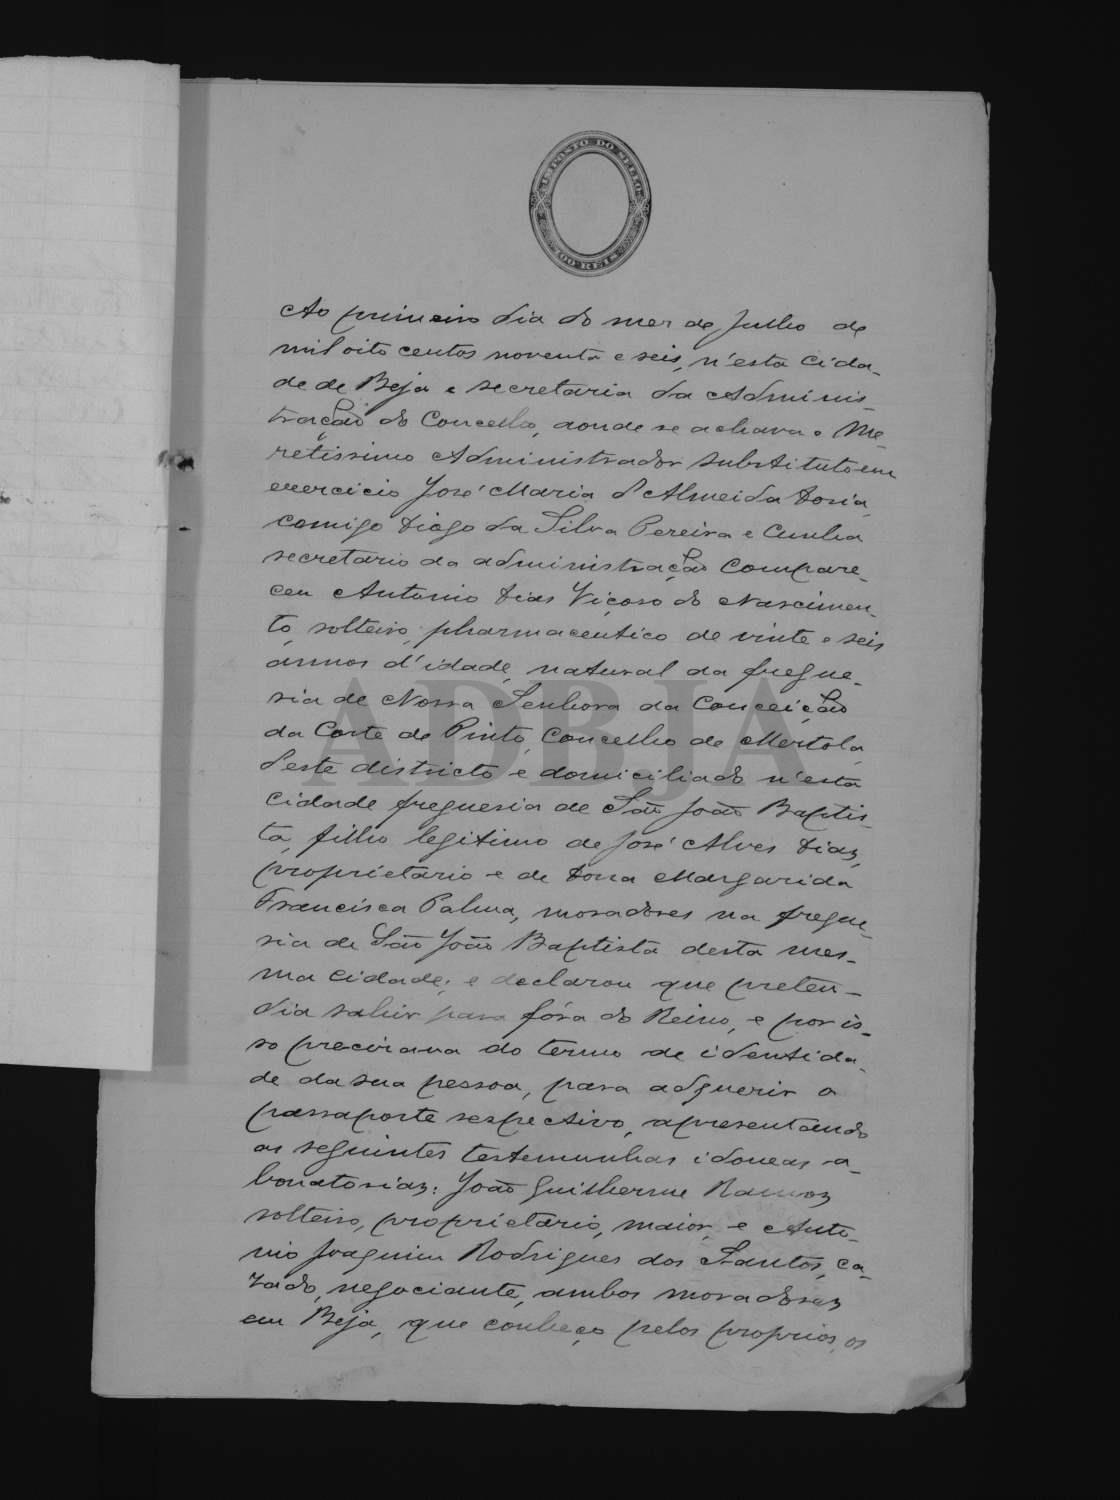 IMPOSTO DO SELLO
100 REIS
Ao primeiro dia do mez de Julho de
mil oito centos noventa e seis, n'esta Cida-
de de Beja e secretaria da Adminis-
tração do Concelho, aonde se achava o Me-
retissimo Administrador substituto em
exercicio José Maria d'Almeida Doria,
comigo Diogo da Silva Pereira e Cunha
secretario da administração Compare-
ceu Antonio Dias Viçoso do Nascimen-
to, solteiro, pharmaceutico de vinte e seis
annos d'idade, natural da fregue-
sia de Nossa Senhora da Conceição
da Corte de Pinto, Concelho de Mertola,
deste districto e domiciliado n'esta
Cidade freguesia de São João Baptis-
ta, filho legitimo de José Alves Dias,
proprietario e de Dona Margarida
Francisca Palma, moradores na fregue-
sia de São João Baptista desta mes-
ma Cidade; e declarou que preten-
dia sahir para fóra do Reino, e por is-
so precizava do termo de identida-
de da sua pessoa, para adquerir o
passaporte respectivo, apresentando
as seguintes testemunhas idoneas a-
bonatorias: João Guilherme Ramos
solteiro, proprietario, maior, e Anto-
nio Joaquim Rodrigues dos Santos, ca-
zado, negociante, ambos moradores
em Beja, que conheço pelos proprios, os
ADBJA